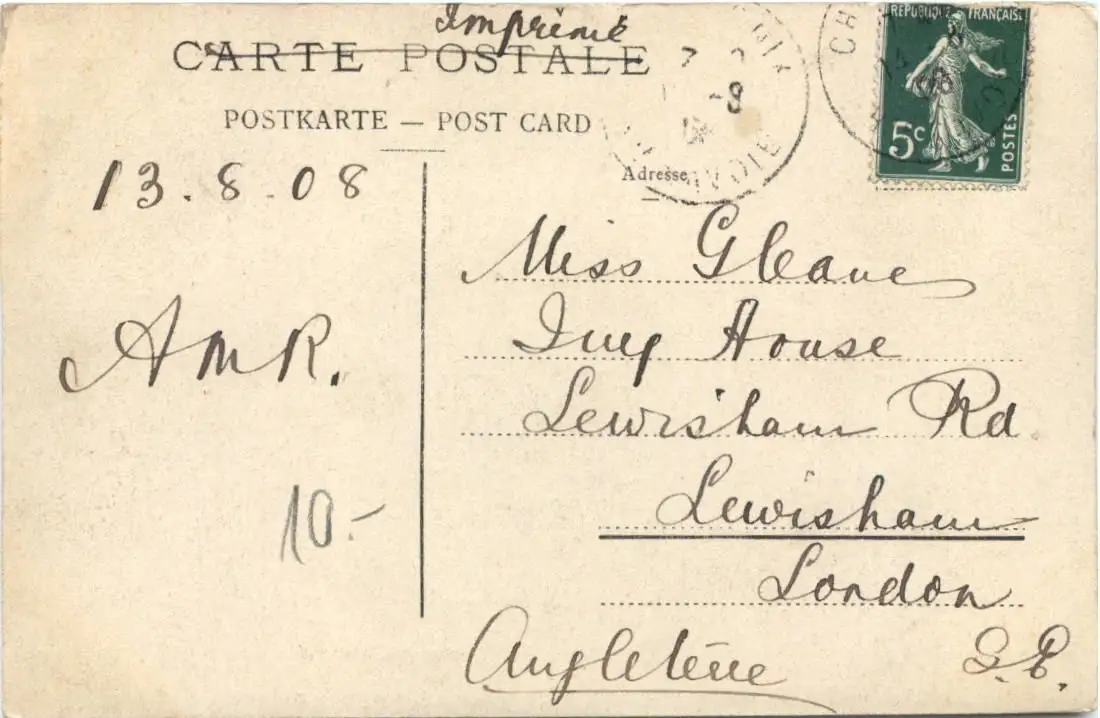 Imprimé
CARTE POSTALE
POSTKARTE — POST CARD
RÉPUBLIQUE FRANÇAISE
5c
POSTES
Adresse
13.8.08
Miss Gleave
Ivy House
Lewisham Rd
Lewisham
London
S.E.
Angleterre
AMR.
10-